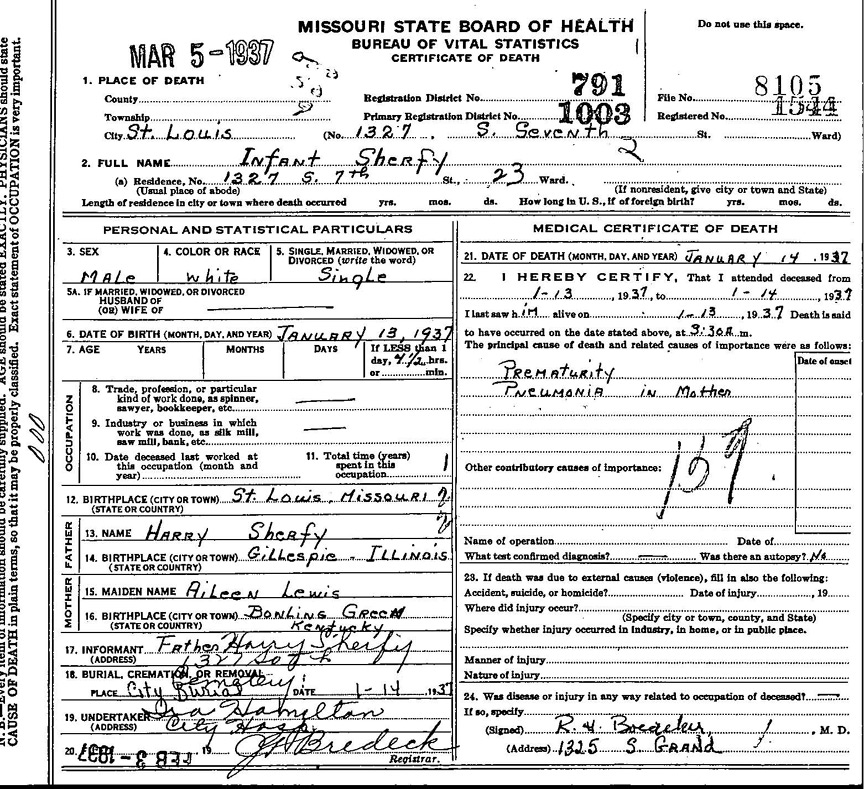 MISSOURI STATE BOARD OF HEALTH
BUREAU OF VITAL STATISTICS
CERTIFICATE OF DEATH
Do not use this space.
MAR 5-1937
1. PLACE OF DEATH
County
Township
City St. Louis (No. 1327 S. Seventh St. Ward)
Registration District No. 791
Primary Registration District No. 1003
File No. 8105
Registered No. 1544
2. FULL NAME Infant Sherfy
(a) Residence, No. 1327 S. 7th St., 23 Ward.
(Usual place of abode) (If nonresident, give city or town and State)
Length of residence in city or town where death occurred yrs. mos. ds. How long in U. S., if of foreign birth? yrs. mos. ds.
PERSONAL AND STATISTICAL PARTICULARS
3. SEX Male
4. COLOR OR RACE White
5. SINGLE, MARRIED, WIDOWED, OR DIVORCED (write the word) Single
5A. IF MARRIED, WIDOWED, OR DIVORCED
HUSBAND OF
(OR) WIFE OF
6. DATE OF BIRTH (MONTH, DAY, AND YEAR) January 13, 1937
7. AGE YEARS MONTHS DAYS If LESS than 1 day, 4 1/2 hrs. or min.
OCCUPATION
8. Trade, profession, or particular
kind of work done, as spinner,
sawyer, bookkeeper, etc.
9. Industry or business in which
work was done, as silk mill,
saw mill, bank, etc.
10. Date deceased last worked at
this occupation (month and
year)
11. Total time (years)
spent in this
occupation
12. BIRTHPLACE (CITY OR TOWN) St. Louis, Missouri
(STATE OR COUNTRY)
FATHER
13. NAME Harry Sherfy
14. BIRTHPLACE (CITY OR TOWN) Gillespie - Illinois
(STATE OR COUNTRY)
MOTHER
15. MAIDEN NAME Aileen Lewis
16. BIRTHPLACE (CITY OR TOWN) Bowling Green
(STATE OR COUNTRY) Kentucky
17. INFORMANT Father Harry Sherfy
(ADDRESS) 1327 So 7th
18. BURIAL, CREMATION, OR REMOVAL
PLACE City Burial Cemetery DATE 1-14, 1937
19. UNDERTAKER Ira Hamilton
(ADDRESS) City Hosp.
20. FEB 3-1937 19 J F Bredeck
Registrar.
MEDICAL CERTIFICATE OF DEATH
21. DATE OF DEATH (MONTH, DAY, AND YEAR) January 14, 1937
22. I HEREBY CERTIFY, That I attended deceased from
1-13, 1937, to 1-14, 1937
I last saw him alive on 1-13, 1937 Death is said
to have occurred on the date stated above, at 3:30A.m.
The principal cause of death and related causes of importance were as follows:
Date of onset
Prematurity
Pneumonia in Mother
Other contributory causes of importance:
159
Name of operation Date of
What test confirmed diagnosis? Was there an autopsy? No
23. If death was due to external causes (violence), fill in also the following:
Accident, suicide, or homicide? Date of injury, 19
Where did injury occur?
(Specify city or town, county, and State)
Specify whether injury occurred in industry, in home, or in public place.
Manner of injury
Nature of injury
24. Was disease or injury in any way related to occupation of deceased?
If so, specify
(Signed) R. H., M. D.
(Address) 1325 S Grand
N. B.—Every item of information should be carefully supplied. AGE should be stated EXACTLY. PHYSICIANS should state
CAUSE OF DEATH in plain terms, so that it may be properly classified. Exact statement of OCCUPATION is very important.